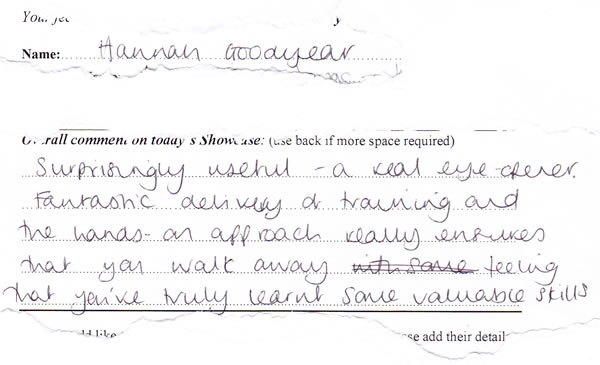 Name: Hannah Goodyear
Overall comment on today's Showcase: (use back if more space required)
Surprisingly useful - a real eye-opener.
Fantastic delivery of training and
the hands-on approach really ensures
that you walk away with some feeling
that you've truly learnt some valuable skills
se add their detail